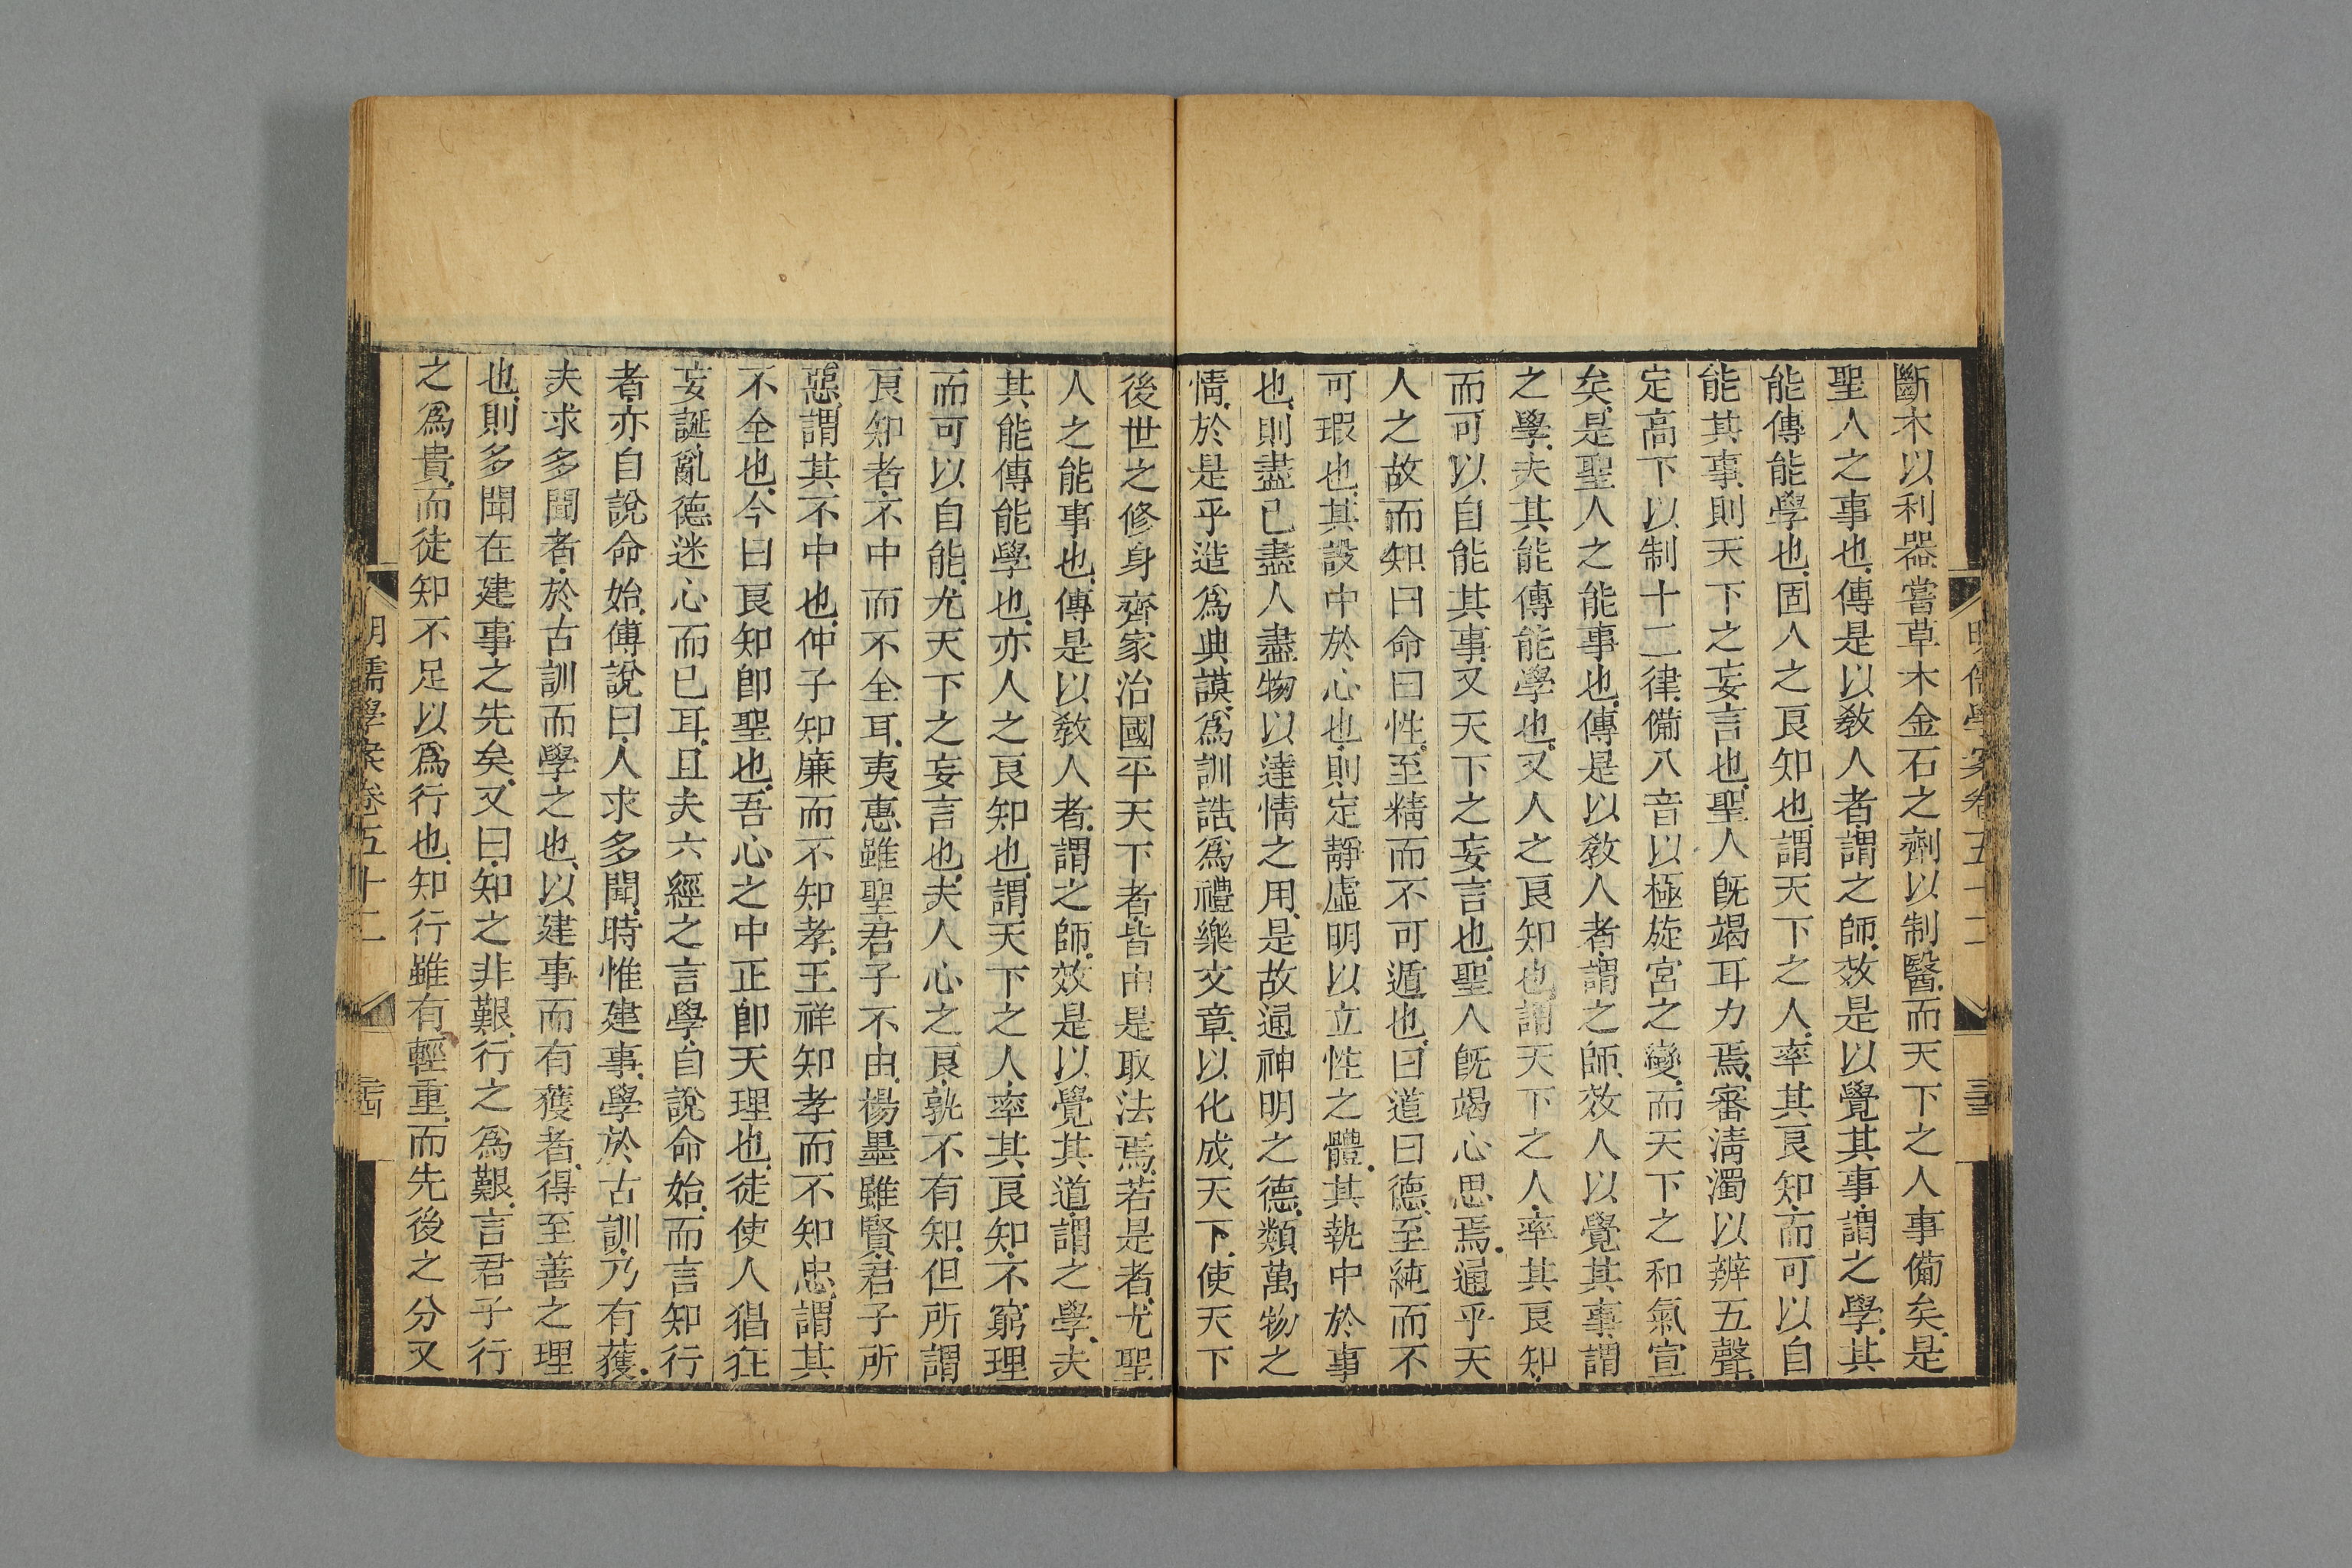 明儒學案卷五十二
三十三
斷木以利器嘗草木金石之劑以制醫而天下之人事備矣是
聖人之事也傳是以敎人者謂之師效是以覺其事謂之學其
能傳能學也固人之良知也謂天下之人率其良知而可以自
能其事則天下之妄言也聖人旣竭耳力焉審淸濁以辨五聲
定高下以制十二律備八音以極旋宮之變而天下之和氣宣
矣是聖人之能事也傳是以敎人者謂之師效人以覺其事謂
之學夫其能傳能學也又人之良知也謂天下之人率其良知
而可以自能其事又天下之妄言也聖人旣竭心思焉通乎天
人之故而知曰命曰性至精而不可遁也曰道曰德至純而不
可瑕也其設中於心也則定靜虛明以立性之體其執中於事
也則盡已盡人盡物以達情之用是故通神明之德類萬物之
情於是乎造爲典謨爲訓誥爲禮樂文章以化成天下使天下
後世之修身齊家治國平天下者皆由是取法焉若是者尤聖
人之能事也傳是以敎人者謂之師效是以覺其道謂之學夫
其能傳能學也亦人之良知也謂天下之人率其良知不窮理
而可以自能尤天下之妄言也夫人心之良孰不有知但所謂
良知者不中而不全耳夷惠雖聖君子不由楊墨雖賢君子所
惡謂其不中也仲子知廉而不知孝王祥知孝而不知忠謂其
不全也今曰良知卽聖也吾心之中正卽天理也徒使人猖狂
妄誕亂德迷心而已耳且夫六經之言學自說命始而言知行
者亦自說命始傅說曰人求多聞時惟建事學於古訓乃有獲
夫求多聞者於古訓而學之也以建事而有獲者得至善之理
也則多聞在建事之先矣又曰知之非艱行之爲艱言君子行
之爲貴而徒知不足以爲行也知行雖有輕重而先後之分又
明儒學案卷五十二
三十四